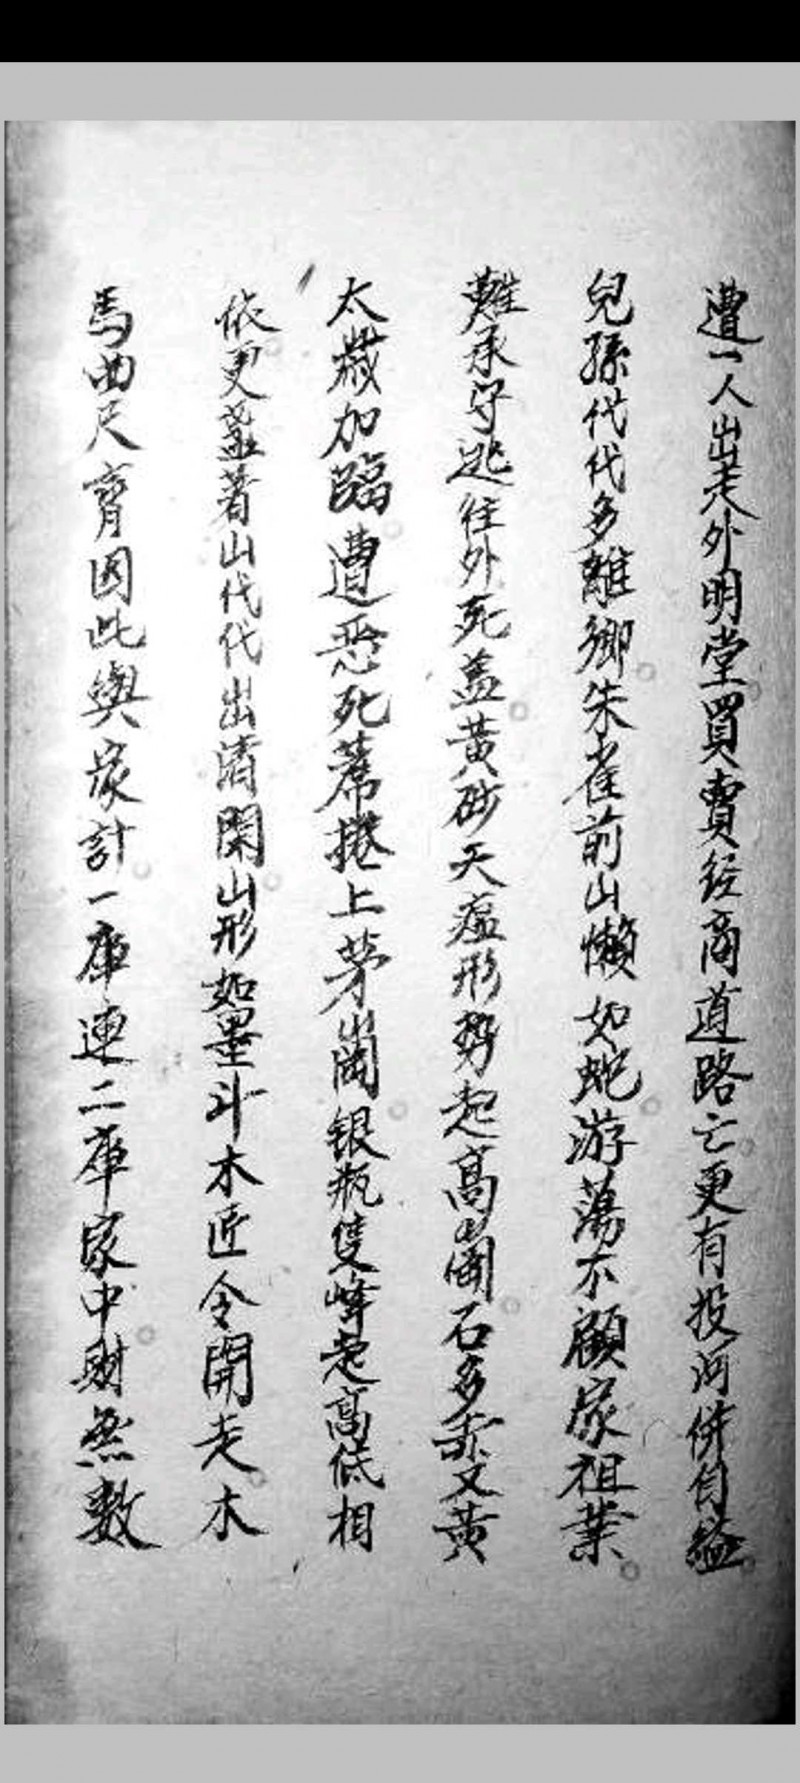 遭一人出走外明堂買賣经商道路亡更有投河併自縊
兒孫代代多離鄉朱雀前山懶如蛇游蕩不顧家祖業
難承守逃往外死盖黃砂天瘟形势起高崗石多赤又黃
太歲加臨遭惡死蓆捲上茅崗银瓶隻峰起高低相
依更盖著山代代出清閑山形如墨斗木匠令開走木
馬曲尺賫因此與家計一庫連二庫家中財無數